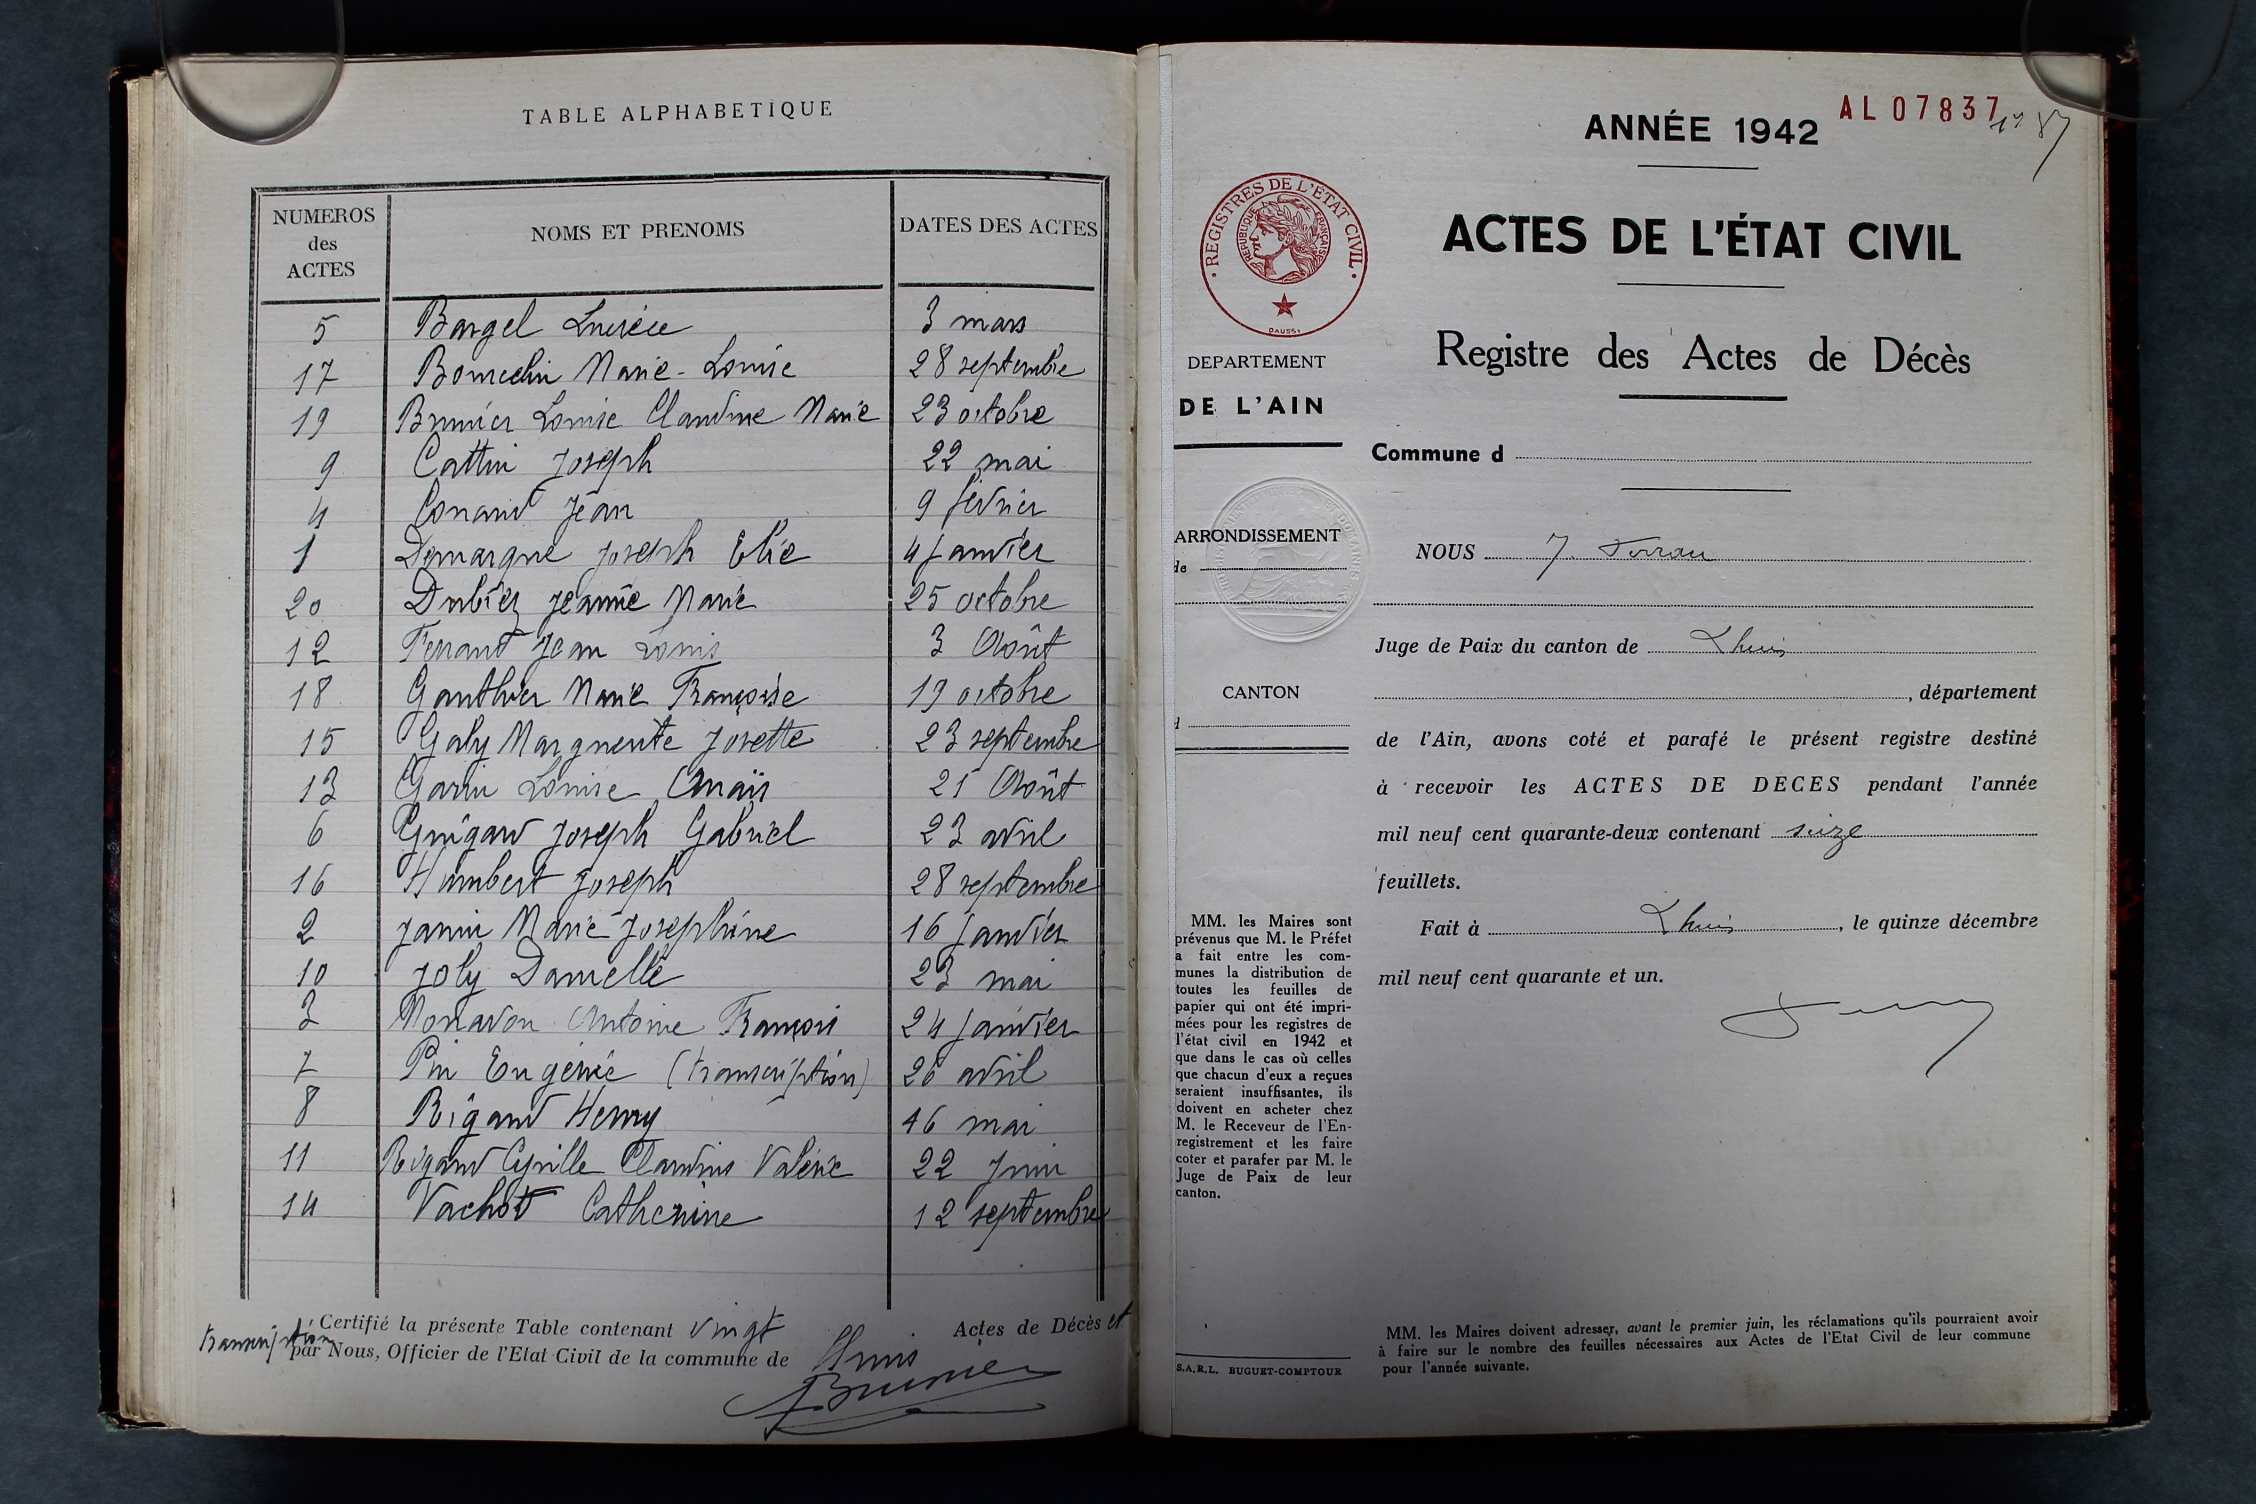 TABLE ALPHABETIQUE
NUMEROS
des
ACTES
NOMS ET PRENOMS
DATES DES ACTES
5 Bargel Lucrèce 3 mars
17 Marie-Louise 28 septembre
19 Brunier Louise Claudine Marie 23 octobre
9 Cattin Joseph 22 mai
4 Conand Jean 9 février
1 Demargne Joseph Elie 4 janvier
20 Jeanne Marie 25 octobre
12 Ferrand Jean Louis 3 Août
18 Gauthier Marie Françoise 19 octobre
15 Galy Marguerite Josette 23 septembre
13 Garin Louise Anaïs 21 Août
6 Guigard Joseph Gabriel 23 avril
16 Humbert Joseph 28 septembre
2 Janin Marie Joséphine 16 janvier
10 Joly Danielle 23 mai
3 Monavon Antoine François 24 janvier
7 Pin Eugénie (transcription) 26 avril
8 Rigaud Henry 16 mai
11 Rigaud Cyrille Claudius Valérie 22 juin
14 Vachot Catherine 12 septembre
Certifié la présente Table contenant vingt Actes de Décès et
transcription
par Nous, Officier de l'Etat Civil de la commune de Lhuis
Brunier
ANNÉE 1942
AL 07837
REGISTRES DE L'ETAT CIVIL
REPUBLIQUE FRANÇAISE
DAUSSY
ACTES DE L'ÉTAT CIVIL
Registre des Actes de Décès
DEPARTEMENT
DE L'AIN
Commune d
ARRONDISSEMENT
de
NOUS J.
Juge de Paix du canton de Lhuis
CANTON
d
, département
de l'Ain, avons coté et parafé le présent registre destiné
à recevoir les ACTES DE DECES pendant l'année
mil neuf cent quarante-deux contenant seize
feuillets.
Fait à Lhuis, le quinze décembre
mil neuf cent quarante et un.
MM. les Maires sont
prévenus que M. le Préfet
a fait entre les com-
munes la distribution de
toutes les feuilles de
papier qui ont été impri-
mées pour les registres de
l'état civil en 1942 et
que dans le cas où celles
que chacun d'eux a reçues
seraient insuffisantes, ils
doivent en acheter chez
M. le Receveur de l'En-
registrement et les faire
coter et parafer par M. le
Juge de Paix de leur
canton.
S.A.R.L. BUGUET-COMPTOUR
MM. les Maires doivent adresser, avant le premier juin, les réclamations qu'ils pourraient avoir
à faire sur le nombre des feuilles nécessaires aux Actes de l'Etat Civil de leur commune
pour l'année suivante.